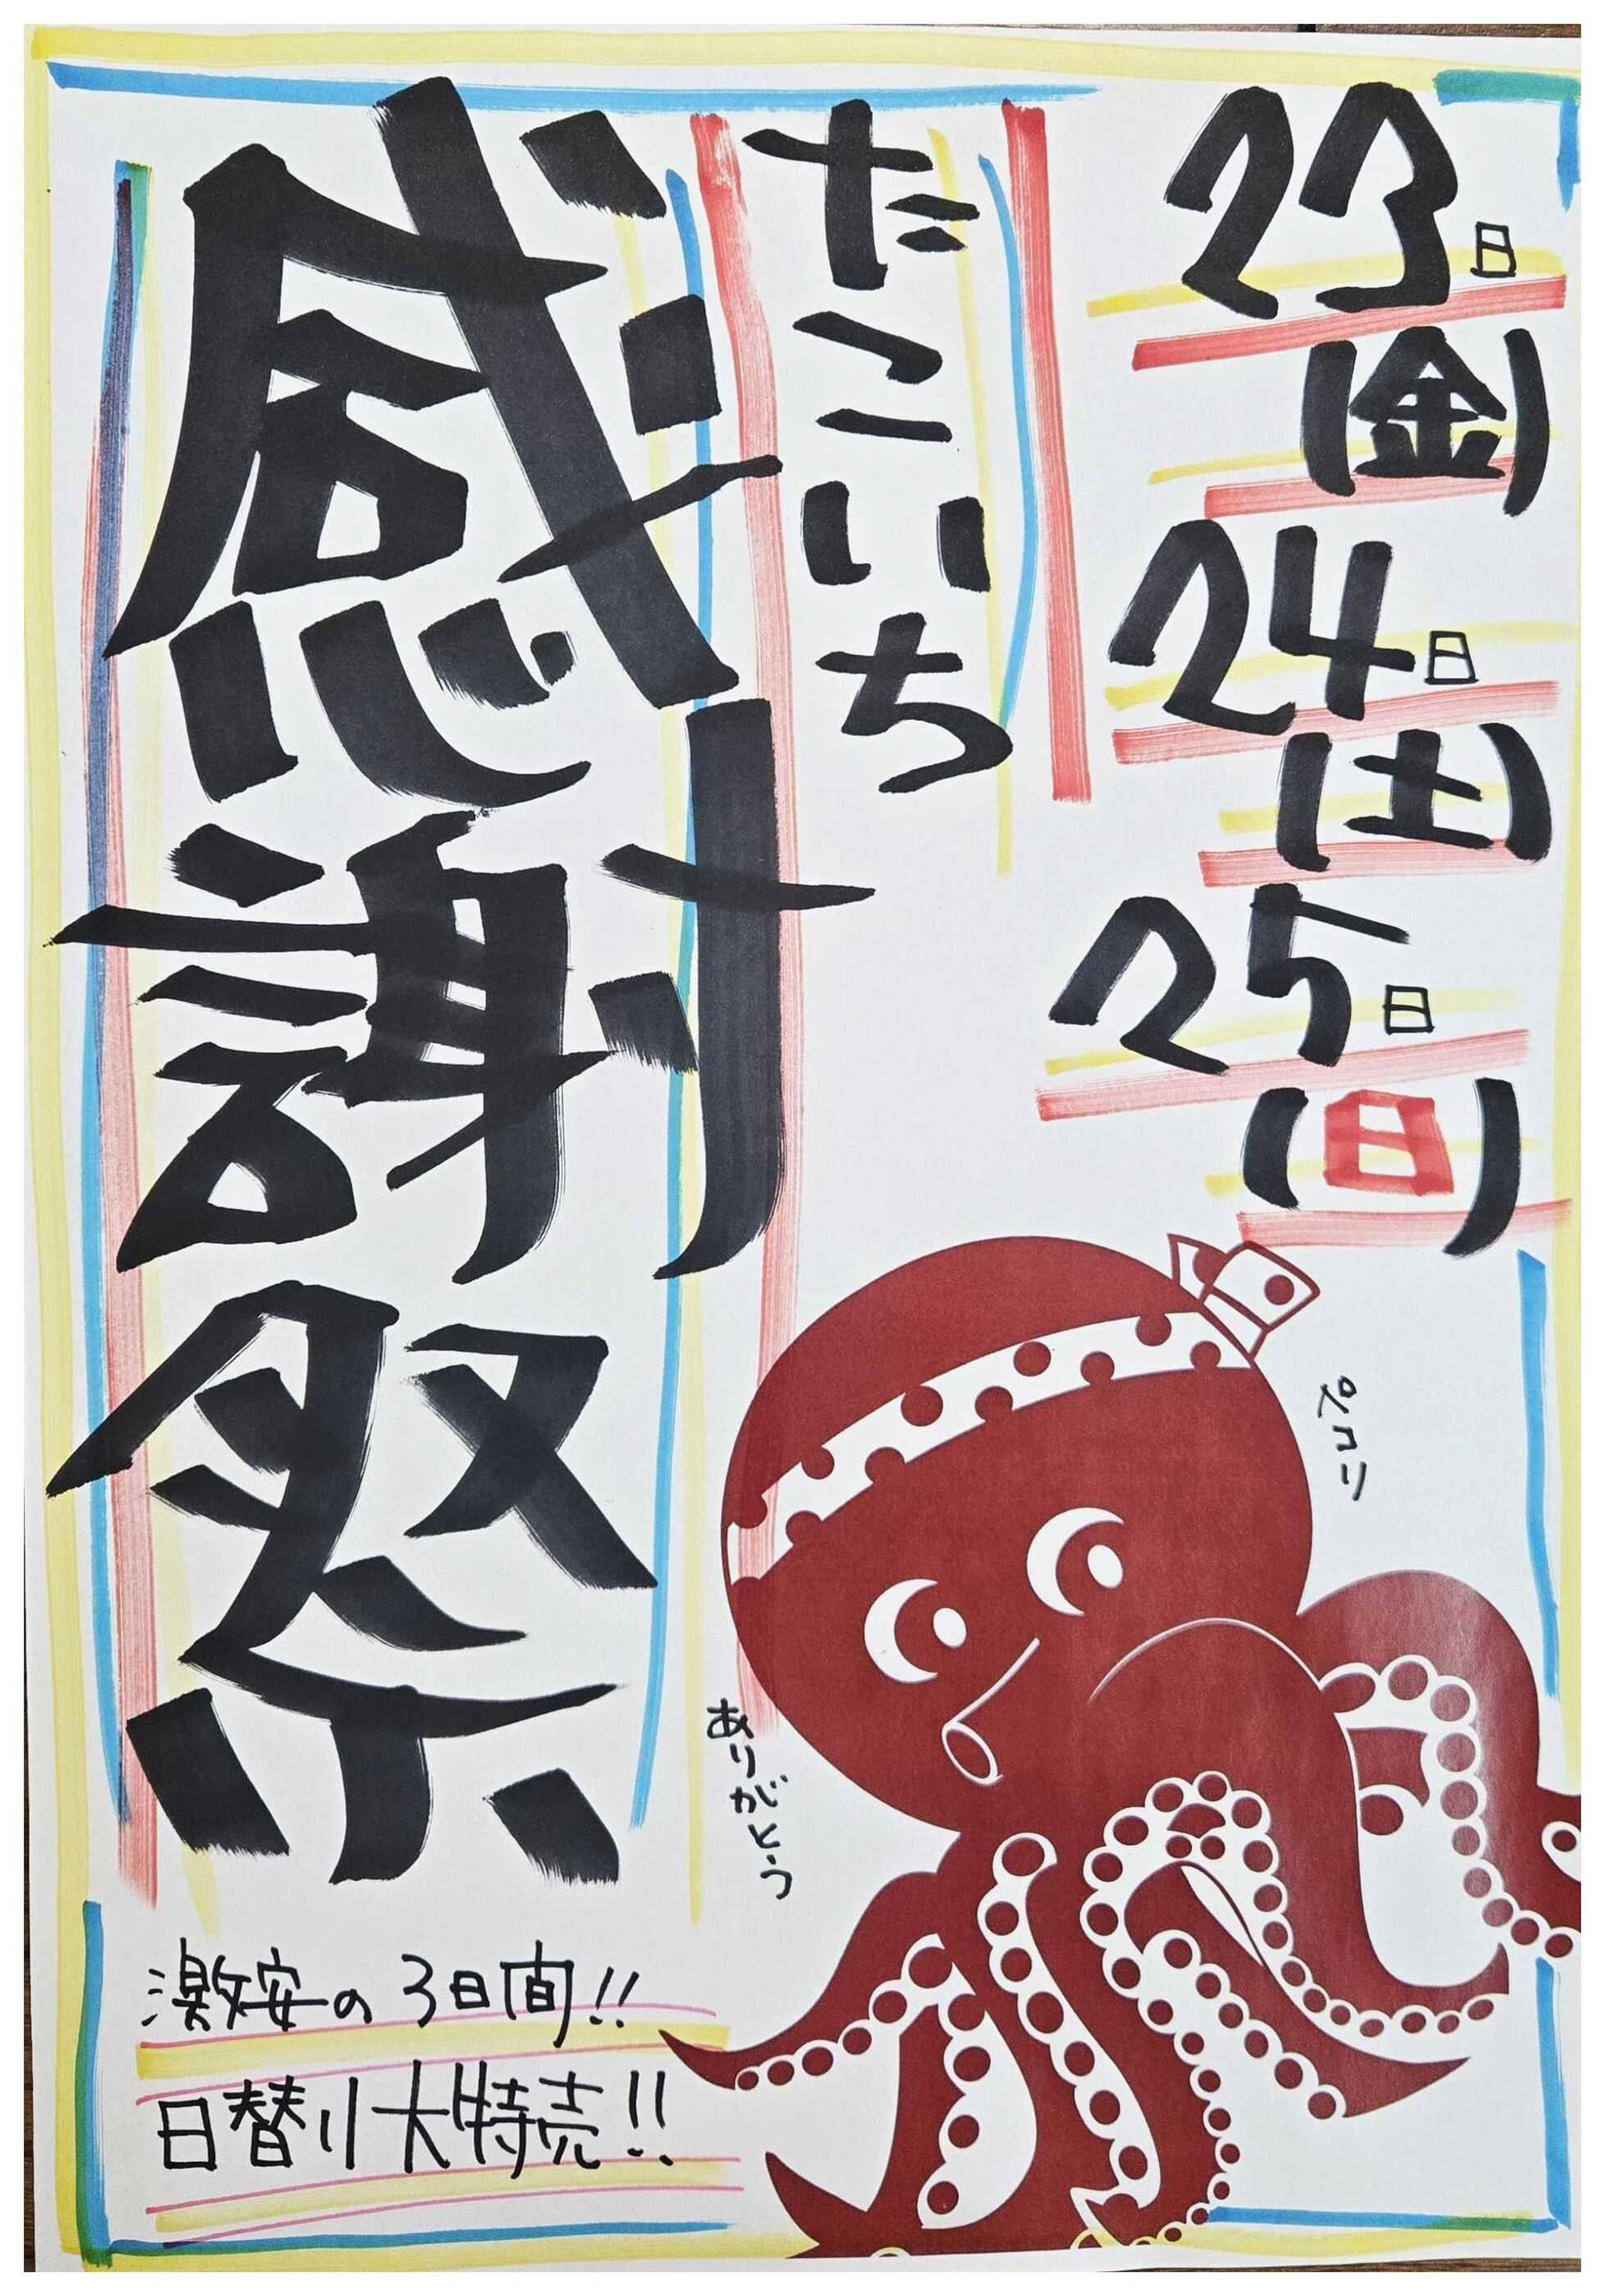 23日
(金)
24日
(土)
25日
(日)
たこいち
感謝祭
ペコリ
ありがとう
激安の3日間!!
日替り大特売!!